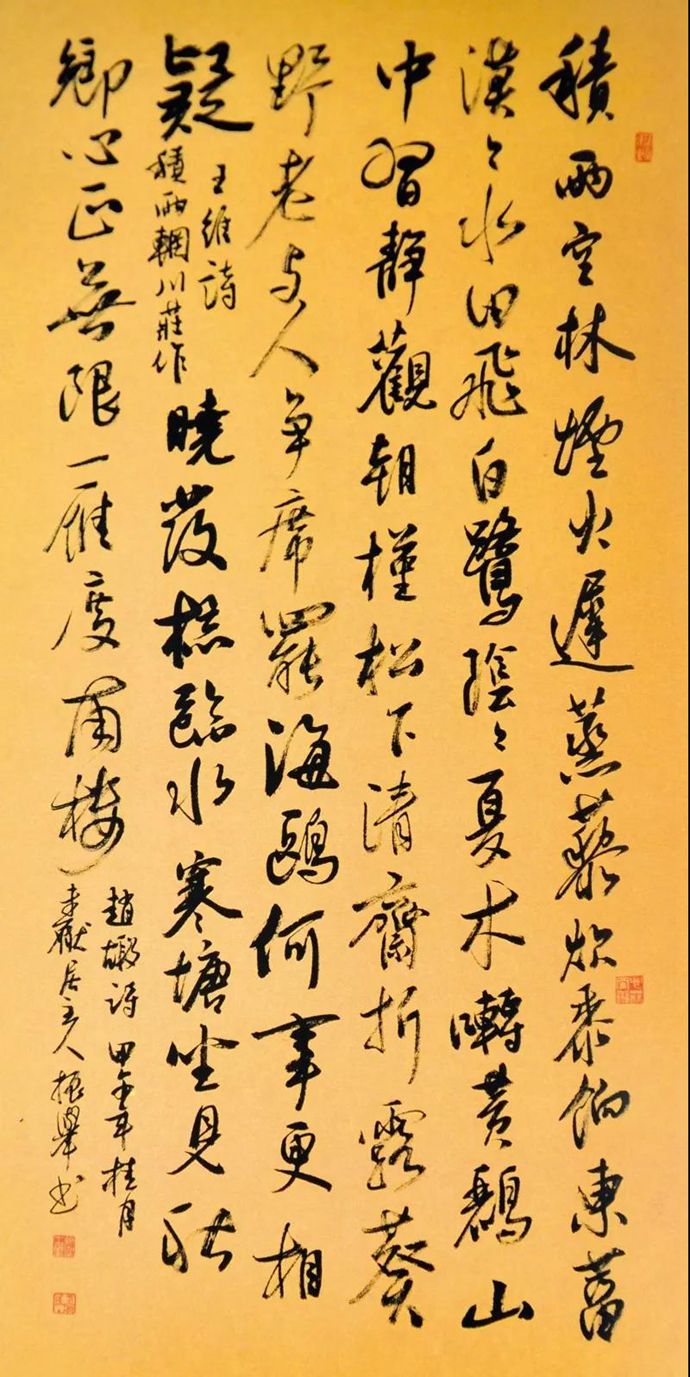 積雨空林煙火遲蒸藜炊黍餉東菑
漠々水田飛白鷺陰々夏木囀黃鸝山
中習靜觀朝槿松下清齋折露葵
野老与人争席罷海鷗何事更相
疑
王維詩
積雨輞川莊作
曉發梳臨水寒塘坐見秋
鄉心正無限一雁度南樓
趙嘏詩甲午年桂月
居主人振舉书